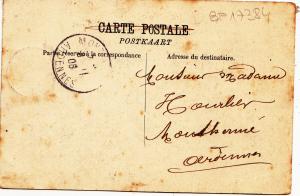 BP 17284
CARTE POSTALE
POSTKAART
Partie réservée à la correspondance
Adresse du destinataire.
ARDENNES
06
Monsieur Madame
Hourlier
Monthermé
Ardennes